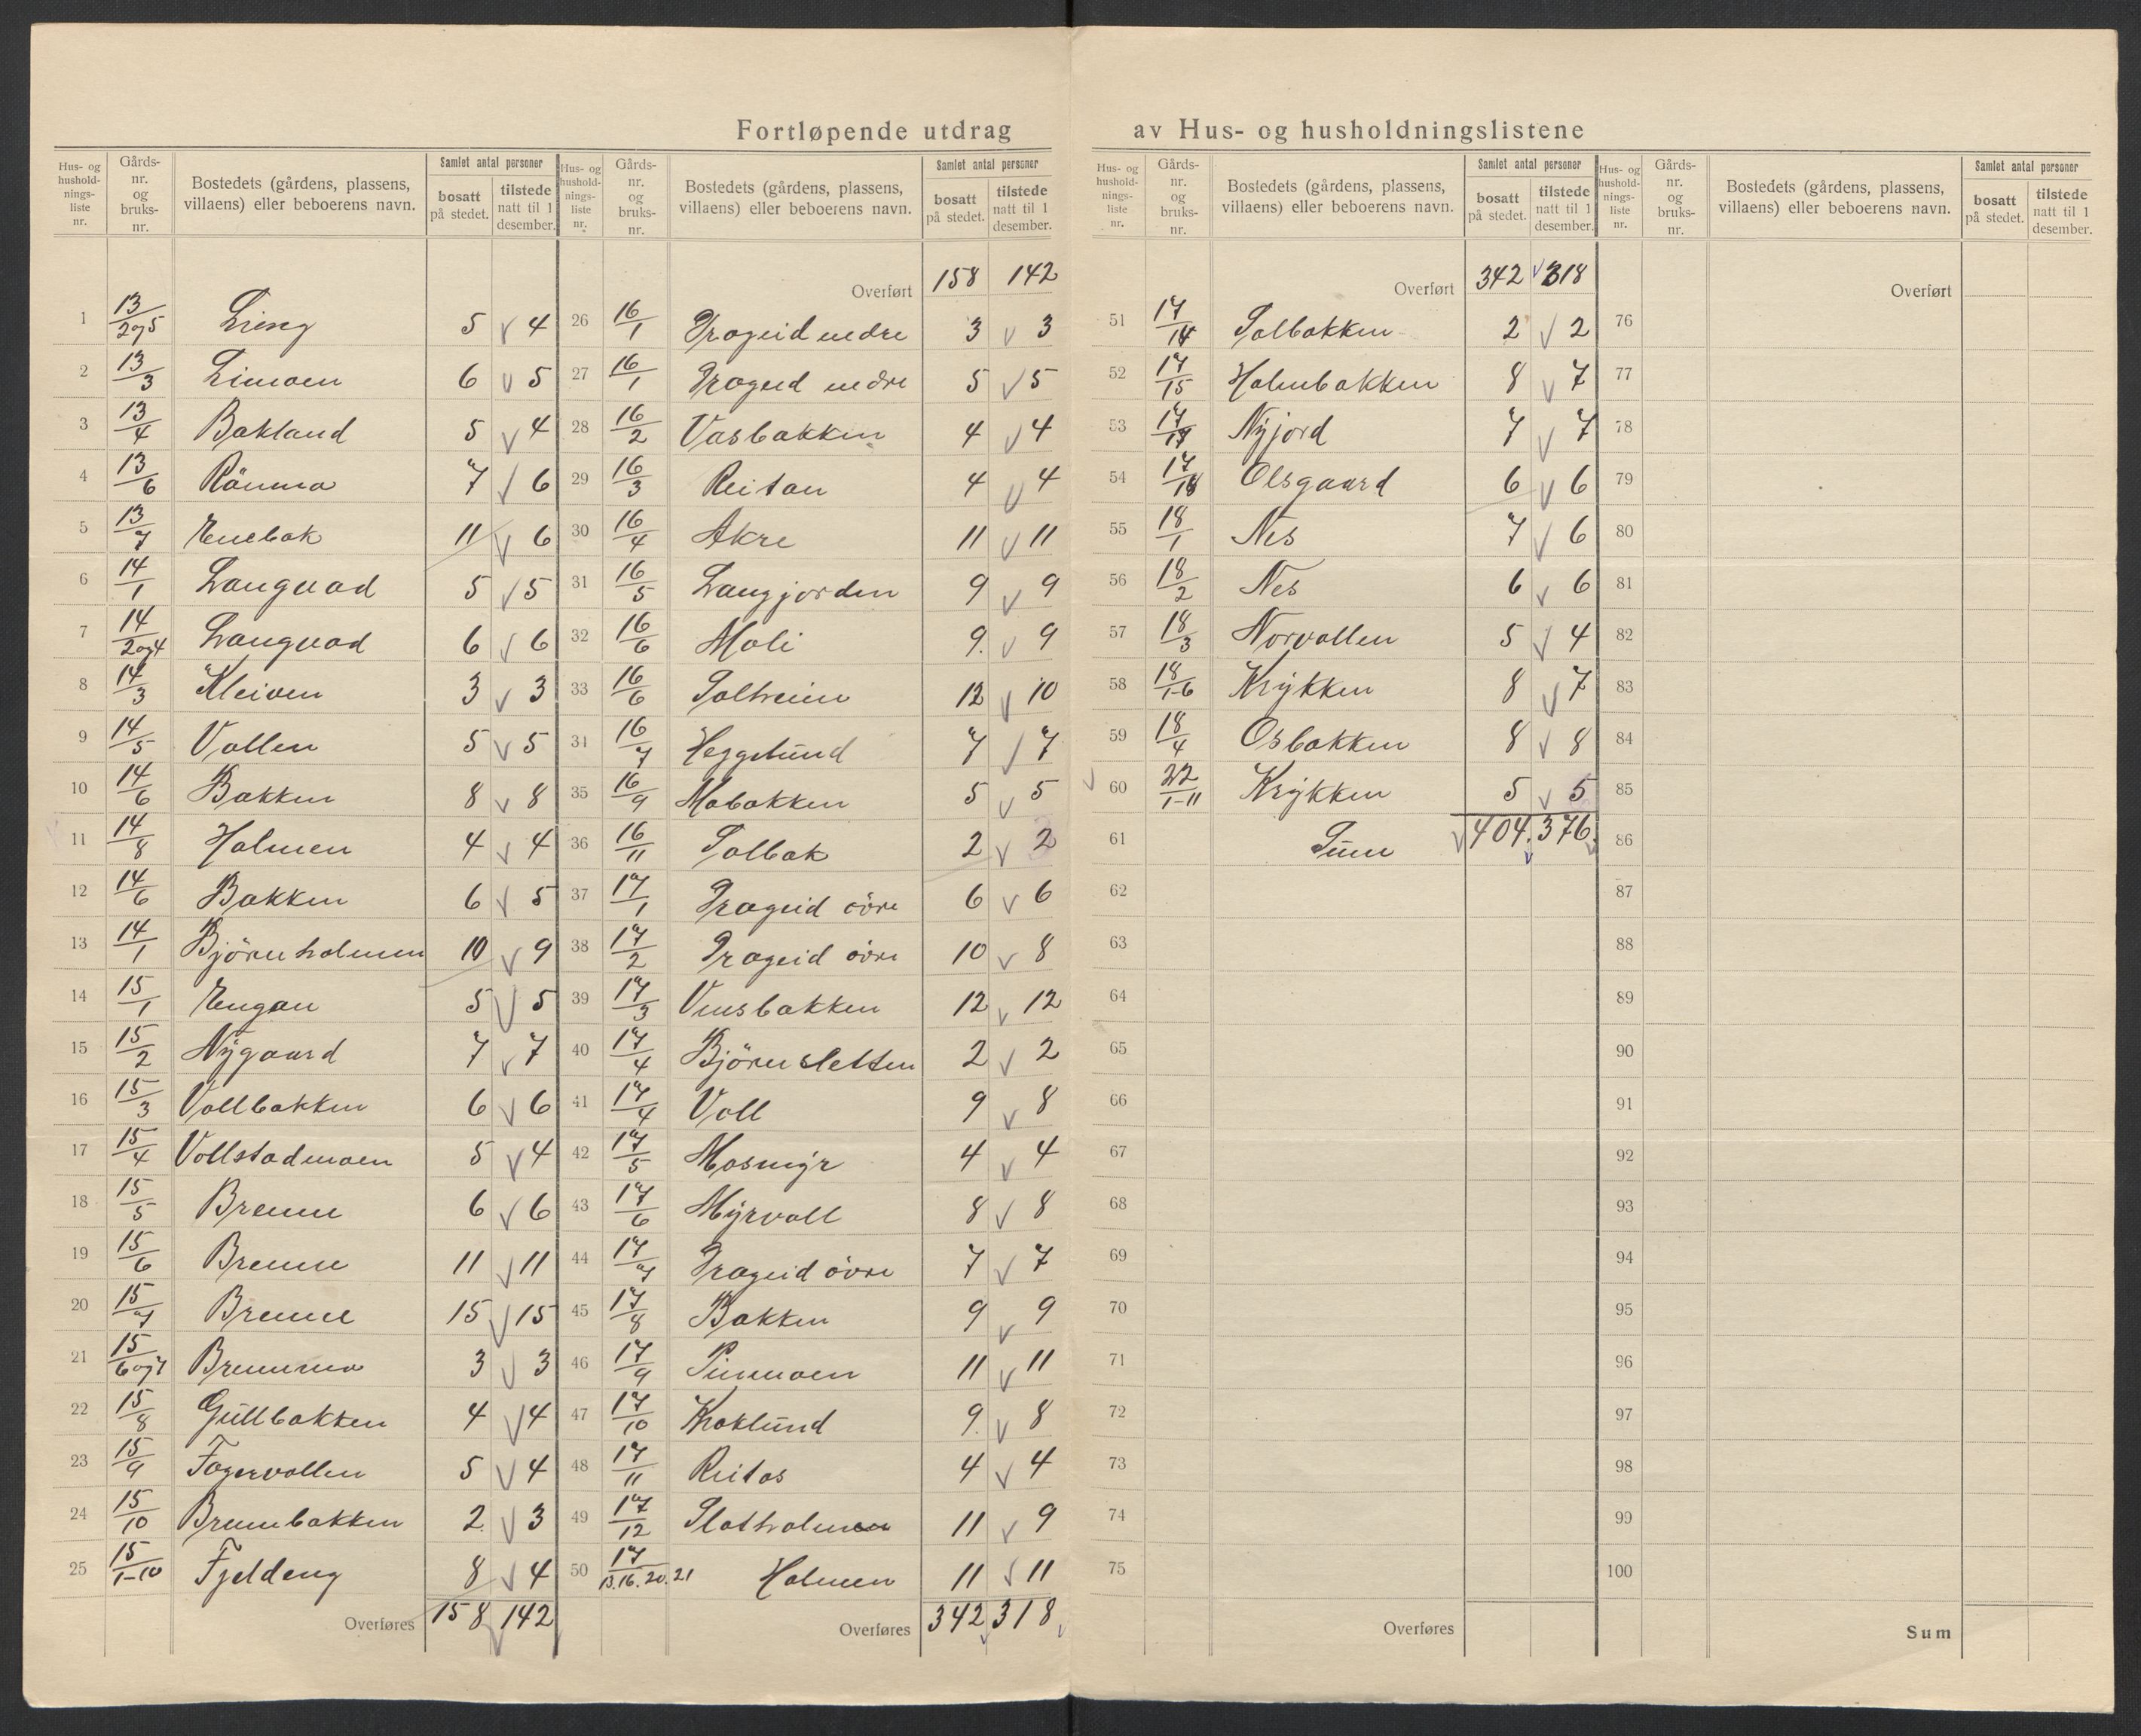 Fortløpende utdrag av Hus- og husholdningslistene
Hus- og hushold-nings-liste nr. | Gårds-nr. og bruks-nr. | Bostedets (gårdens, plassens, villaens) eller beboerens navn. | Samlet antal personer | bosatt på stedet. | tilstede natt til 1 desember.
1 13/2og5 Lieng 5 4
2 13/3 Limoen 6 5
3 13/4 Bakland 5 4
4 13/6 Rönmo 7 6
5 13/7 Enebak 11 6
6 14/1 Langvad 5 5
7 14/2og4 Langvad 6 6
8 14/3 Kleiven 3 3
9 14/5 Vollen 5 5
10 14/6 Bakken 8 8
11 14/8 Holmen 4 4
12 14/6 Bakken 6 5
13 14/1 Björnholmen 10 9
14 15/1 Engan 5 5
15 15/2 Nygaard 7 7
16 15/3 Vollbakken 6 6
17 15/4 Vollstadmoen 5 4
18 15/5 Brenne 6 6
19 15/6 Brenne 11 11
20 15/7 Brenne 15 15
21 15/6og7 Brenmo 3 3
22 15/8 Gullbakken 4 4
23 15/9 Fagervollen 5 4
24 15/10 Brennbakken 2 3
25 15/1-10 Fjeldeng 8 4
Overføres 158 142
Hus- og hushold-nings-liste nr. | Gårds-nr. og bruks-nr. | Bostedets (gårdens, plassens, villaens) eller beboerens navn. | Samlet antal personer | bosatt på stedet. | tilstede natt til 1 desember.
Overført 158 142
26 16/1 Drageid nedre 3 3
27 16/1 Drageid nedre 5 5
28 16/2 Vasbakken 4 4
29 16/3 Reitan 4 4
30 16/4 Akre 11 11
31 16/5 Langjorden 9 9
32 16/6 Moli 9. 9
33 16/6 Solheim 12 10
34 16/7 Heggelund 7 7
35 16/9 Mobakken 5 5
36 16/11 Solbak 2 2
37 17/1 Drageid övre 6 6
38 17/2 Drageid övre 10 8
39 17/3 Vensbakken 12 12
40 17/4 Björnsletten 2 2
41 17/4 Voll 9 8
42 17/5 Mosmyr 4 4
43 17/6 Myrvoll 8 8
44 17/7 Drageid övre 7 7
45 17/8 Bakken 9 9
46 17/9 11 11
47 17/10 Kroklund 9. 8
48 17/11 Reitos 4 4
49 17/12 Slotholmen 11 9
50 17/13.16.20.21 Holmen 11 11
Overføres 342 318
Hus- og hushold-nings-liste nr. | Gårds-nr. og bruks-nr. | Bostedets (gårdens, plassens, villaens) eller beboerens navn. | Samlet antal personer | bosatt på stedet. | tilstede natt til 1 desember.
Overført 342 318
51 17/14 Solbakken 2 2
52 17/15 Holmbakken 8 7
53 17/17 Nyjord 7 7
54 17/18 Olsgaard 6 6
55 18/1 Nes 7 6
56 18/2 Nes 6 6
57 18/3 Norvollen 5 4
58 18/1-6 Krykken 8 7
59 18/4 Osbakken 8 8
60 22/1-11 Krykken 5 5
61 Sum 404. 376.
62
63
64
65
66
67
68
69
70
71
72
73
74
75
Overføres
Hus- og hushold-nings-liste nr. | Gårds-nr. og bruks-nr. | Bostedets (gårdens, plassens, villaens) eller beboerens navn. | Samlet antal personer | bosatt på stedet. | tilstede natt til 1 desember.
Overført
76
77
78
79
80
81
82
83
84
85
86
87
88
89
90
91
92
93
94
95
96
97
98
99
100
Sum